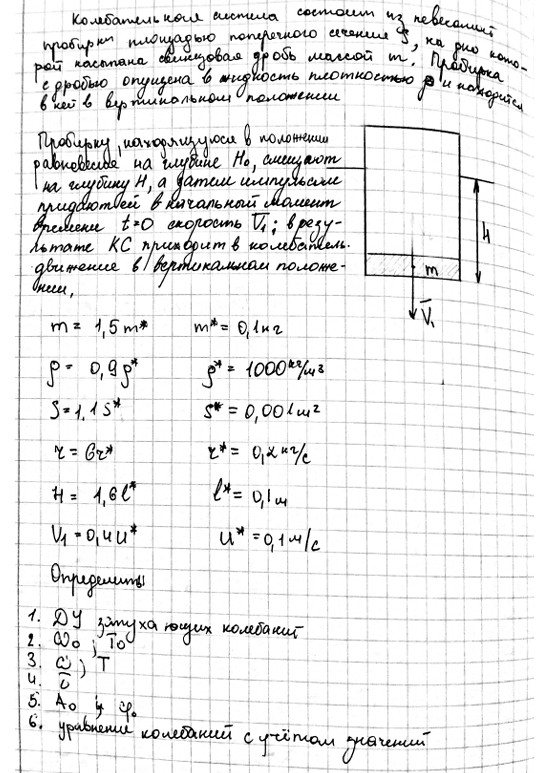 Колебательная система состоит из невесомой
пробирки площадью поперечного сечения S, на дно кото-
рой насыпана свинцовая дробь массой m. Пробирка
с дробью опущена в жидкость плотностью ρ и находится
в ней в вертикальном положении
Пробирку, находящуюся в положении
равновесия на глубине H₀, смещают
на глубину H, а затем импульсом
придают ей в начальный момент
времени t=0 скорость V̄₁; в резу-
льтате КС приходит в колебатель.
движение в вертикальном положе-
нии.
H
m
V̄₁
m = 1,5m* m* = 0,1кг
ρ = 0,9ρ* ρ* = 1000кг/м3
S = 1,1S* S* = 0,001м2
r = 6r* r* = 0,2кг/с
H = 1,6l* l* = 0,1м
V₁ = 0,4u* u* = 0,1м/с
Определить
1. ДУ затухающих колебаний
2. ω₀ ; T₀
3. ω ; T
4.
5. A₀ и φ₀
6. уравнение колебаний с учётом значений